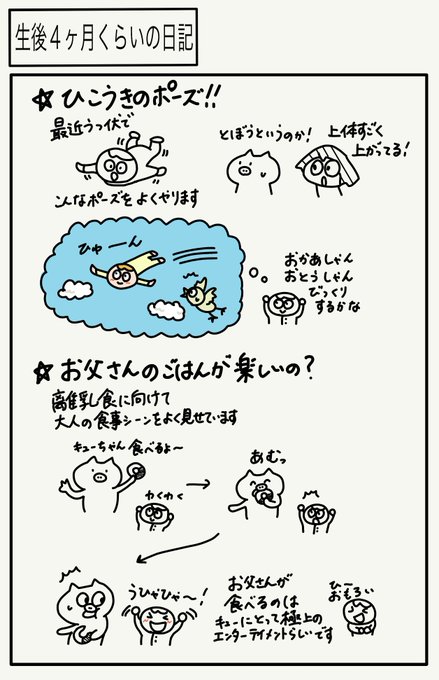 生後4ヶ月くらいの日記
☆ひこうきのポーズ!!
最近うつ伏で
こんなポーズをよくやります
とぼうというのか!
上体すごく
上がってる!
ひゅーん
おかあしゃん
おとうしゃん
びっくり
するかな
☆お父さんのごはんが楽しいの?
離乳食に向けて
大人の食事シーンをよく見せています
キューちゃん食べるよ〜
わくわく
あむっ
うひゃひゃ〜!
お父さんが
食べるのは
キューにとって極上の
エンターテイメントらしいです
ひー
おもろい